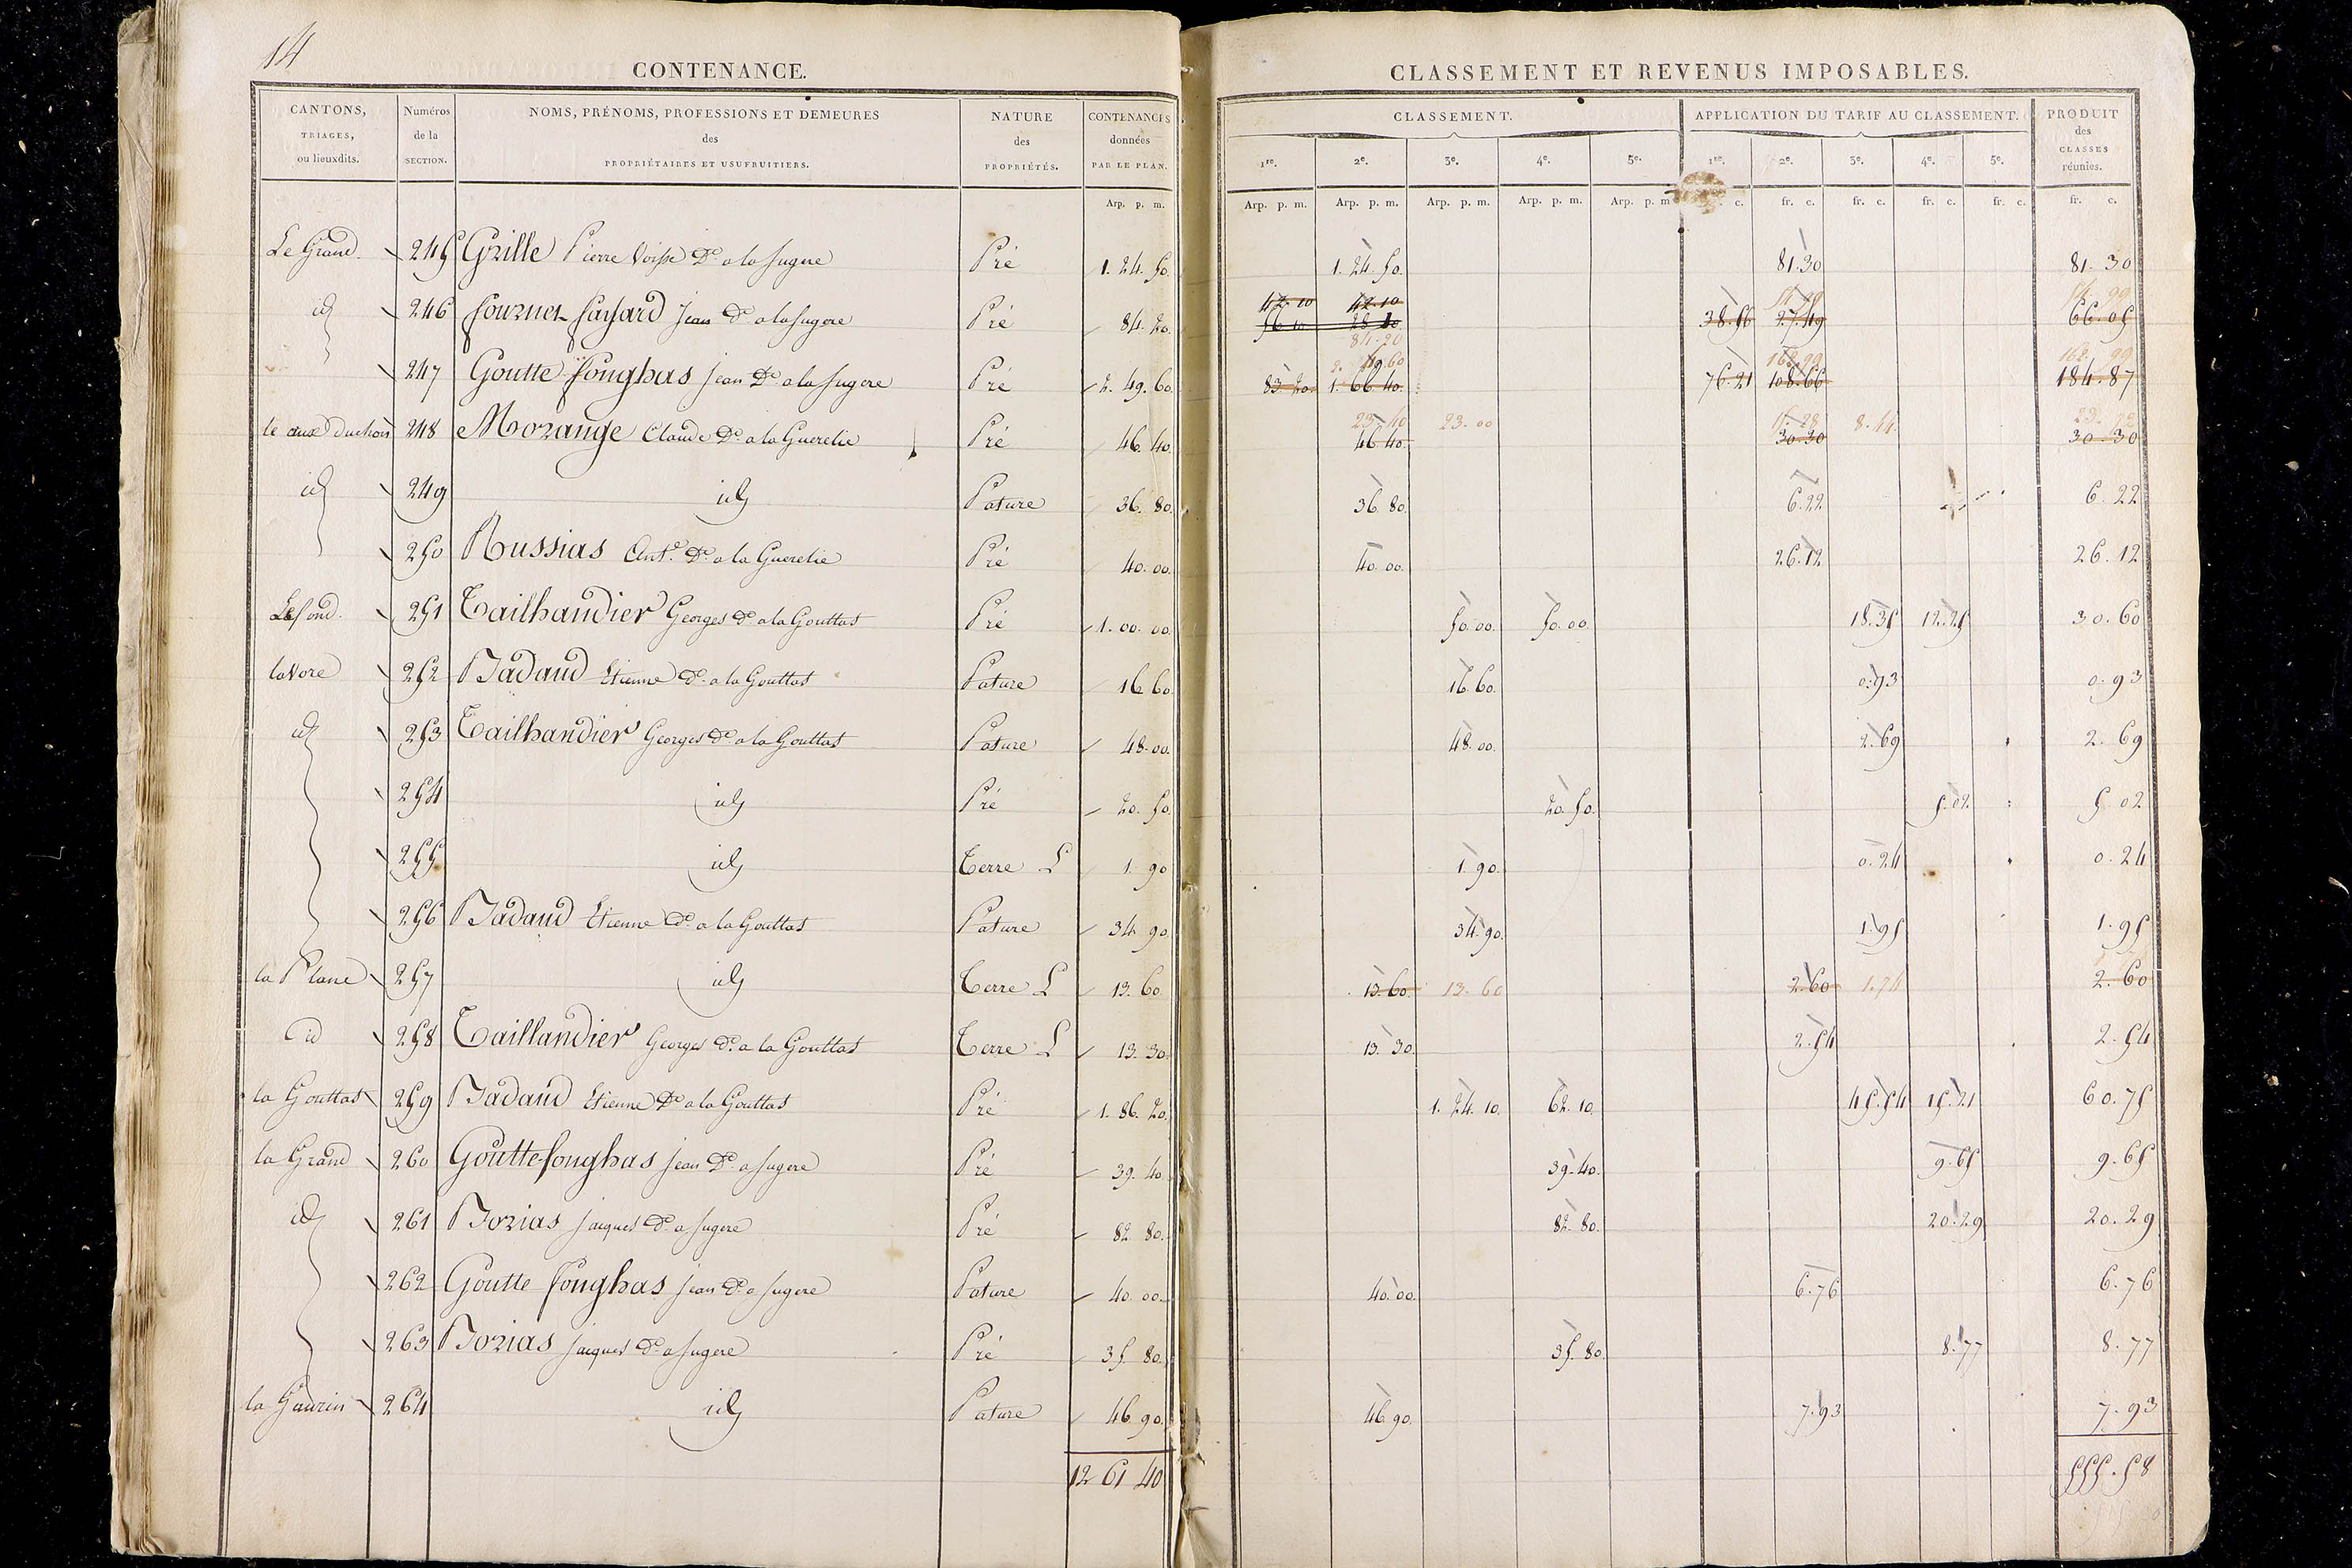 14
CONTENANCE.
CANTONS, TRIAGES, ou lieuxdits.
Numéros de la SECTION.
NOMS, PRÉNOMS, PROFESSIONS ET DEMEURES des PROPRIÉTAIRES ET USUFRUITIERS.
NATURE des PROPRIÉTÉS.
CONTENANCES données PAR LE PLAN.
Arp. p. m.
CLASSEMENT ET REVENUS IMPOSABLES.
CLASSEMENT.
APPLICATION DU TARIF AU CLASSEMENT.
PRODUIT des CLASSES réunies.
1re. 2e. 3e. 4e. 5e. 1re. 2e. 3e. 4e. 5e.
Arp. p. m. Arp. p. m. Arp. p. m. Arp. p. m. Arp. p. m c. fr. c. fr. c. fr. c. fr. c. fr. c.
Le Grand. 245 Grille Pierre De a la fugere Pré 1. 24. 50. 1. 24. 50. 81.30 81. 30
id 246 fournet fayard Jean De a la fugere Pré 84. 20. 42. 10 42. 10 56 10 28 10 84. 20 38.56 27.49 54. 99 66. 05
247 Goutte fonghas Jean De a la fugere Pré 2. 49. 60. 83. 20 1. 66. 40. 2. 49. 60 76.21 108.66 162.99 162. 99 184. 87
248 Morange Claude De a la Guerelie Pré 46. 40. 46. 40. 23. 40 23. 00 30.30 15.28 8.44 30. 30
id 249 id Pature 36. 80. 36. 80. 6.22 6. 22
250 Russias Ant.e De a la Guerelie Pré 40. 00. 40. 00. 26.12 26. 12
Lefond. 251 Tailhandier Georges De a la Gouttas Pré 1. 00. 00. 50. 00. 50. 00. 18.35 12.25 30. 60
la Vore 252 Badaud Etienne De a la Gouttas Pature 16. 60. 16. 60. 0.93 0. 93
id 253 Tailhandier Georges De a la Gouttas Pature 48. 00. 48. 00. 2.69 2. 69
254 id Pré 20. 50. 20. 50. 5.02 5. 02
255 id Terre L 1. 90 1. 90. 0.24 0. 24
256 Badaud Etienne De a la Gouttas Pature 34. 90. 34. 90. 1.95 1. 95
la Plane 257 id Terre L 13. 60 13. 60. 13. 60 2.60 1.74 2. 60
id 258 Taillandier Georges De a la Gouttas Terre L 13. 30. 13. 30. 2.54 2. 54
la Gouttas 259 Badaud Etienne De a la Gouttas Pré 1. 86. 20. 1. 24. 10. 62. 10. 45.54 15.21 60. 75
la Grand 260 Goutte fonghas Jean De a fugere Pré 39. 40. 39. 40. 9.65 9. 65
id 261 Borias Jacques De a fugere Pré 82. 80. 82. 80. 20.29 20. 29
262 Goutte fonghas Jean De a fugere Pature 40. 00. 40. 00. 6.76 6. 76
263 Borias Jacques De a fugere Pré 35. 80. 35. 80. 8.77 8. 77
la Gaurin 264 id Pature 46. 90. 46. 90. 7.93 7. 93
12 61 40
555. 58